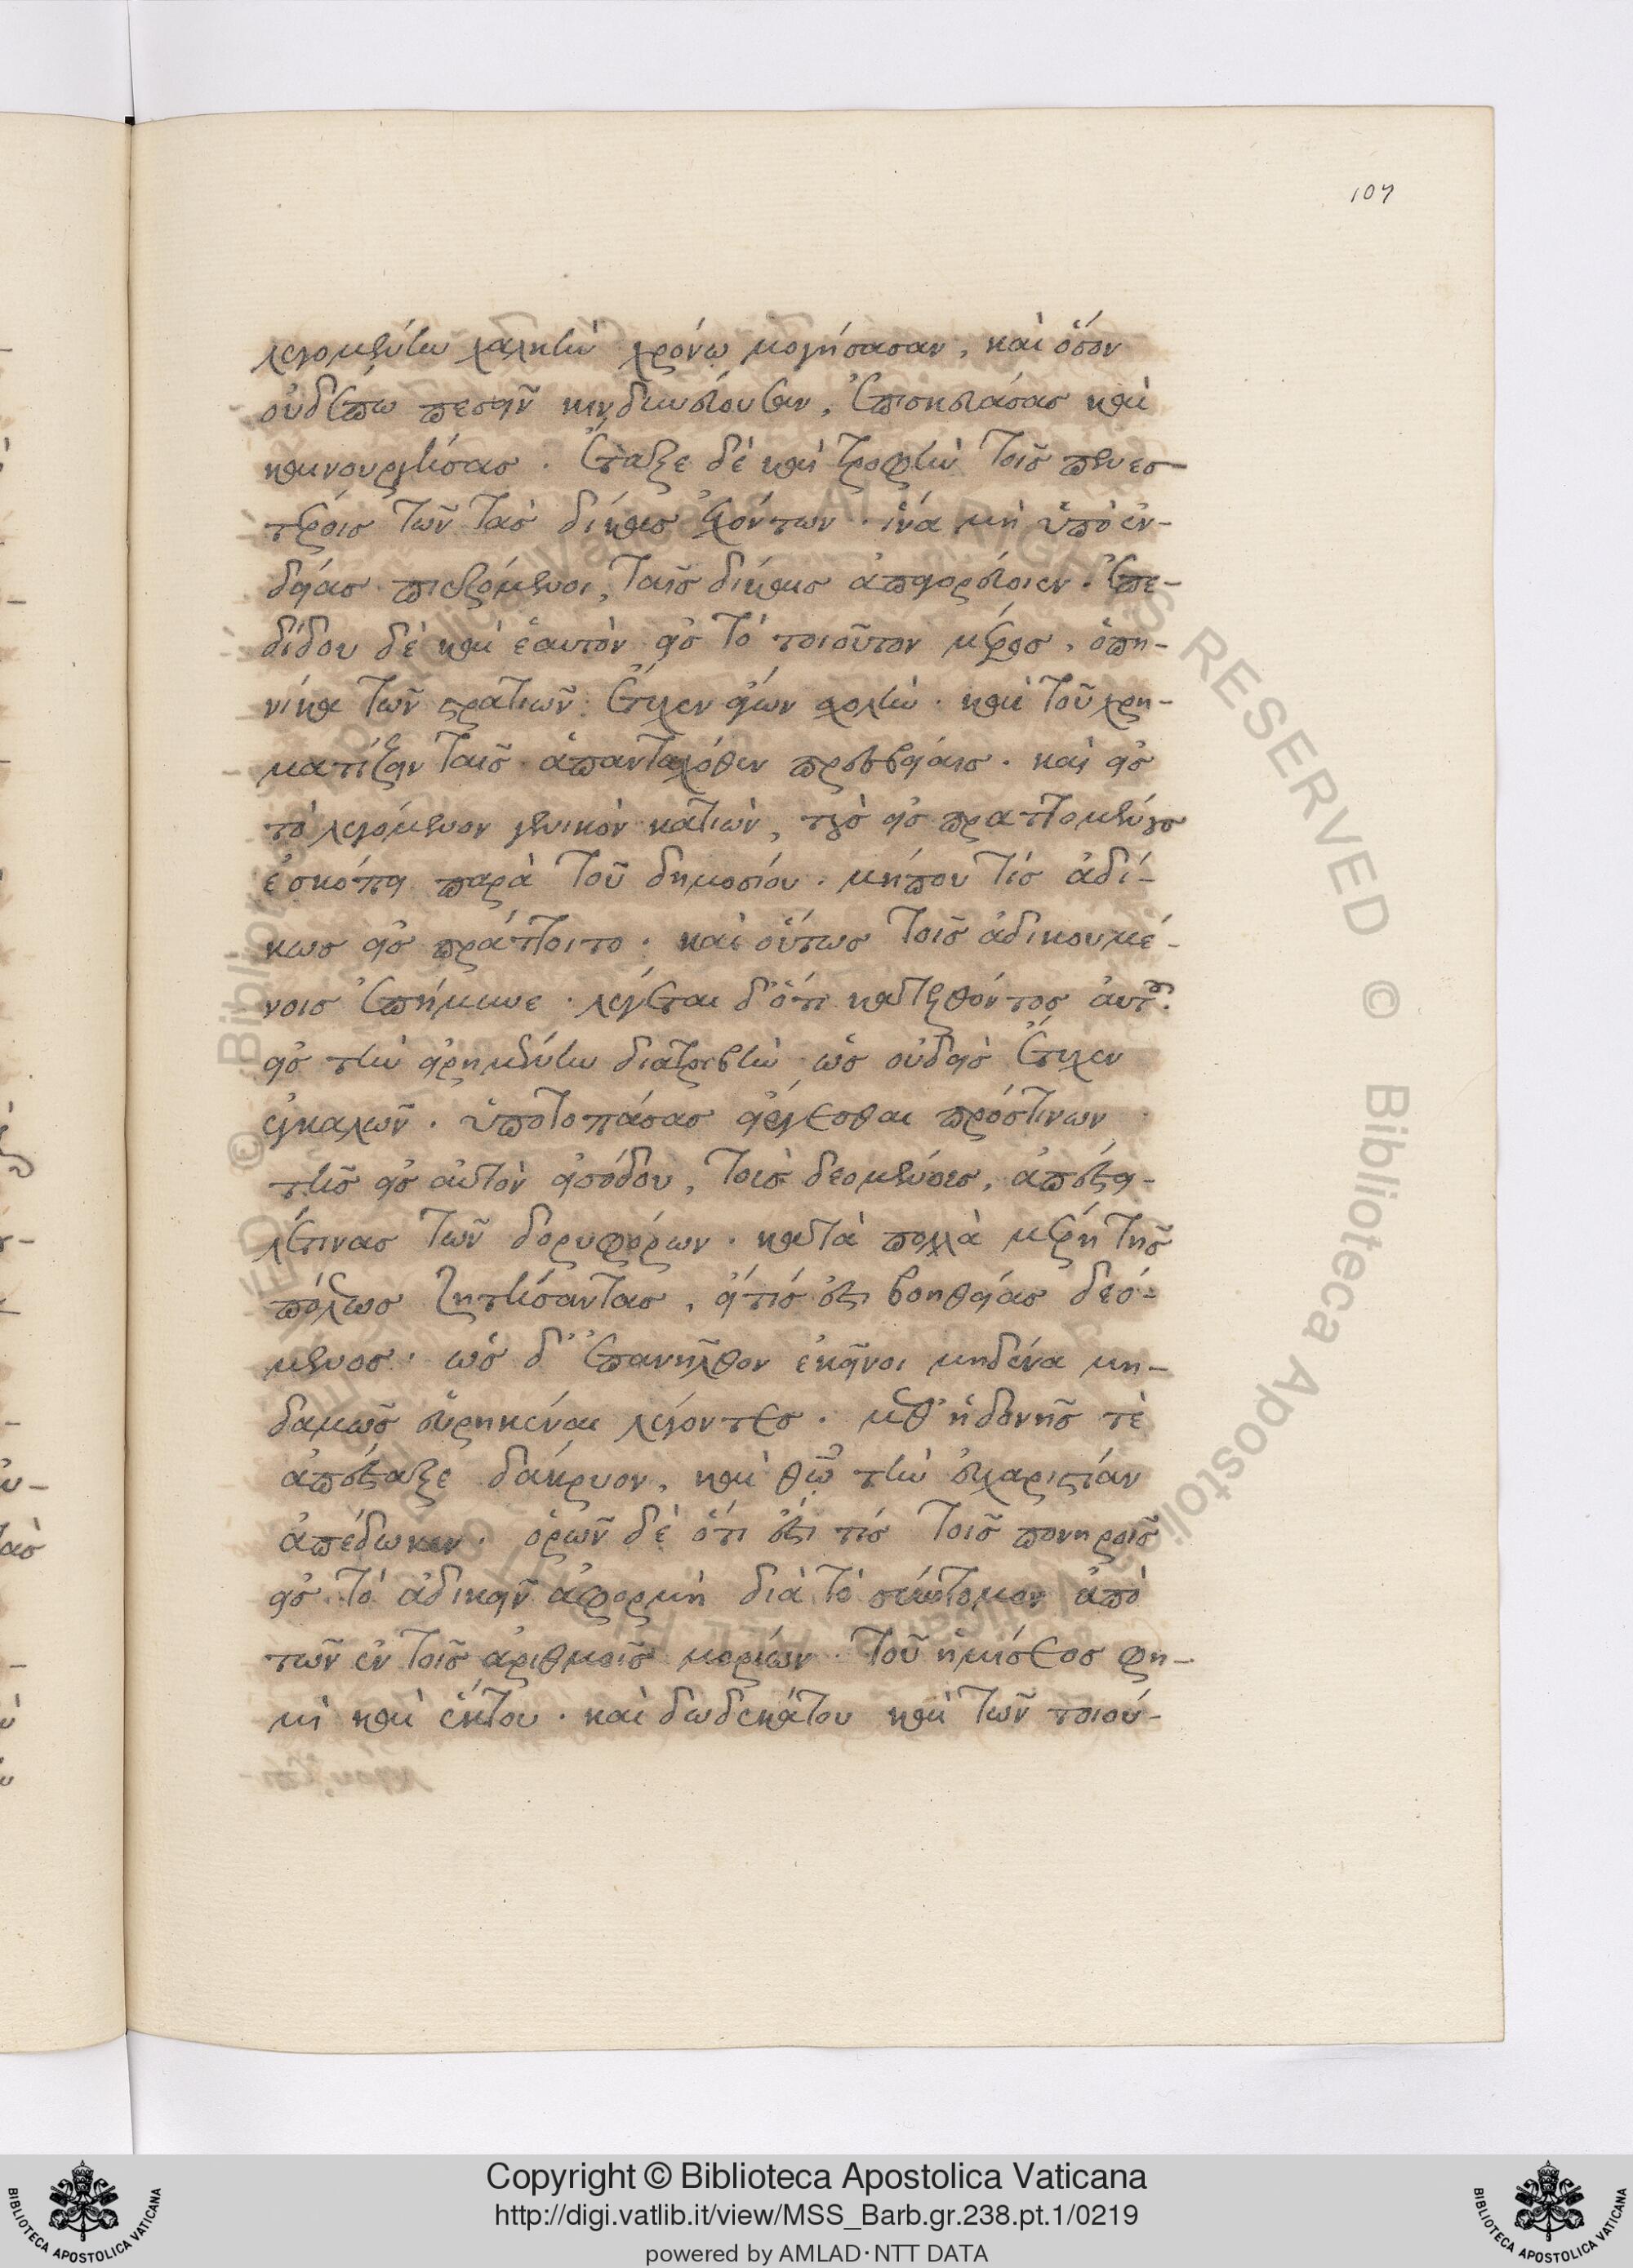 107
λεγομένην χαλκῆν χρόνω μογήσασαν, καὶ ὅσον
οὐδέπω πεσεῖν κινδυνεύουσαν, ἐπισκευάσας καὶ
καινουργήσας. ἔταξε δὲ καὶ τροφὴν τοῖς πενεσ-
τέροις τῶν τὰς δίκας ἐχόντων. ἵνα μὴ ὑπὸ ἐν-
δείας πιεζόμενοι, ταῖς δίκαις ἀπαγορεύοιεν. ἐπε-
δίδου δὲ καὶ ἑαυτὸν εἰς τὸ τοιοῦτον μέρος, ὁπη-
νίκα τῶν στρατιῶν ἔτυχεν ἄγων σχολήν. καὶ τοῦ χρη-
ματίζειν ταῖς ἁπανταχόθεν πρεσβείαις. καὶ εἰς
τὸ λεγόμενον γενικὸν κατιὼν, τοὺς εἰσπραττομένους
ἐσκόπει παρὰ τοῦ δημοσίου. μήπου τίς ἀδί-
κως εἰσπράττοιτο. καὶ οὕτως τοῖς ἀδικουμέ-
νοις ἐπήμυνε. λέγεται δ' ὅτι κατελθόντος αὐτοῦ
εἰς τὴν εἰρημένην διατριβὴν ὡς οὐδεὶς ἔτυχεν
ἐγκαλῶν. ὑποτοπάσας εἴργεσθαι πρός τινων
τῆς εἰς αὐτὸν εἰσόδου, τοὺς δεομένους, ἀποστεί-
λέ τινας τῶν δορυφόρων. κατὰ πολλὰ μέρη τῆς
πόλεως ζητήσαντας, εἴ τίς ἐστι βοηθείας δεό-
μενος. ὡς δ' ἐπανῆλθον ἐκεῖνοι μηδένα μη-
δαμῶς εὑρηκέναι λέγοντες. μεθ' ἡδονῆς τὲ
ἀπέσταξε δάκρυον, καὶ θεῶ τὴν εὐχαριστίαν
ἀπέδωκεν. ὁρῶν δὲ ὅτι ἐστί τίς τοῖς πονηροῖς
εἰς τὸ ἀδικεῖν ἀφορμὴ διὰ τὸ σύντομον ἀπὸ
τῶν ἐν τοῖς ἀριθμοῖς μορίων. τοῦ ἡμίσεος φη-
μὶ καὶ ἕκτου. καὶ δωδεκάτου καὶ τῶν τοιού-
Copyright © Biblioteca Apostolica Vaticana
http://digi.vatlib.it/view/MSS_Barb.gr.238.pt.1/0219
powered by AMLAD·NTT DATA